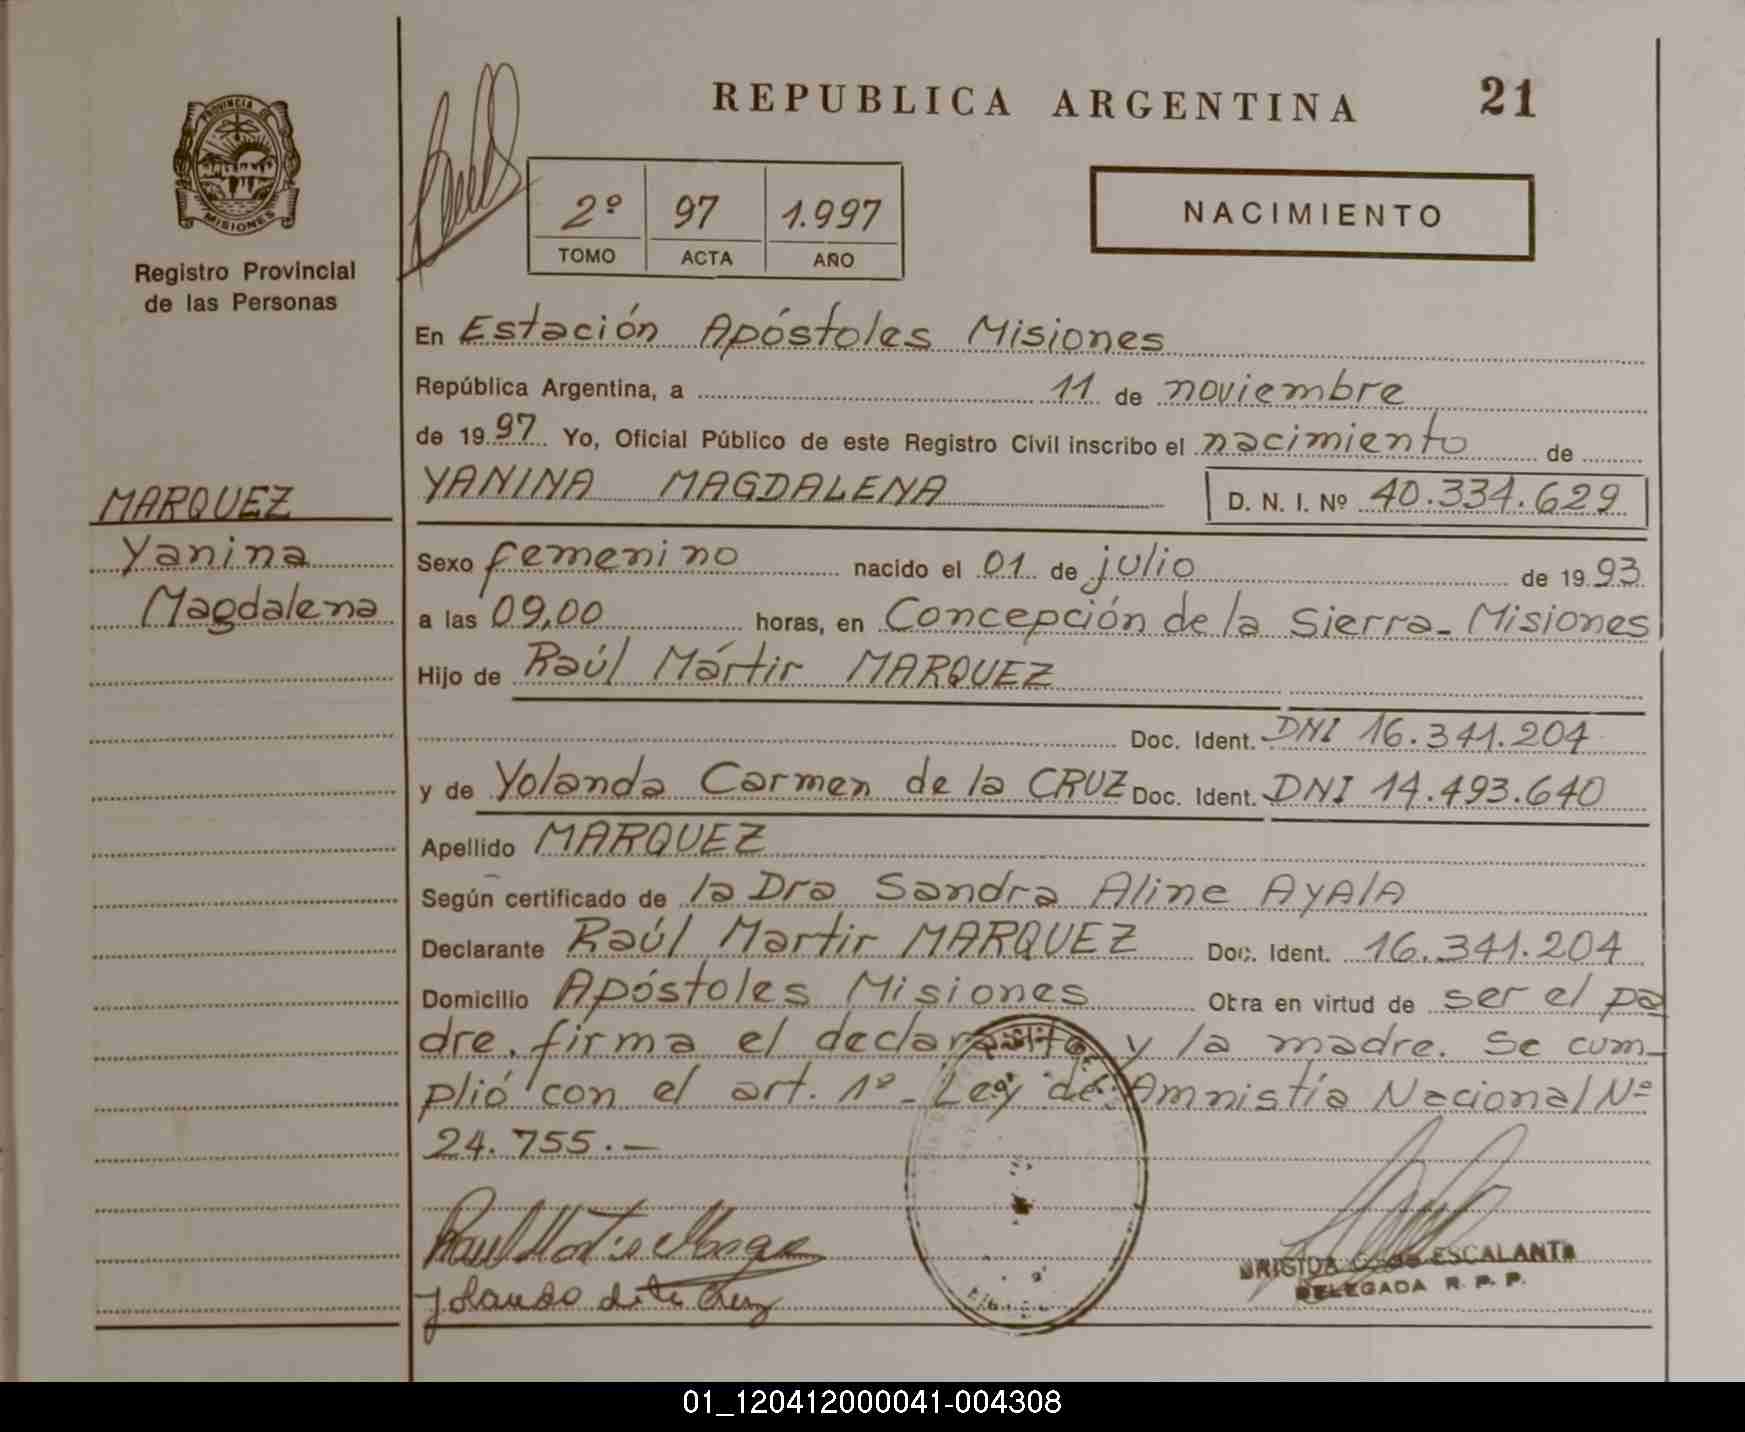 REPUBLICA ARGENTINA 21
PROVINCIA DE
MISIONES
Registro Provincial
de las Personas
2º 97 1.997
TOMO ACTA AÑO
NACIMIENTO
En Estación Apóstoles Misiones
República Argentina, a 11 de noviembre
de 1997 Yo, Oficial Público de este Registro Civil inscribo el nacimiento de
YANINA MAGDALENA D. N. I. Nº 40.334.629
MARQUEZ
Yanina
Magdalena
Sexo femenino nacido el 01 de julio de 1993
a las 09,00 horas, en Concepción de la Sierra- Misiones
Hijo de Raúl Mártir MARQUEZ
Doc. Ident. DNI 16.341.204
y de Yolanda Carmen de la CRUZ Doc. Ident. DNI 14.493.640
Apellido MARQUEZ
Según certificado de la Dra Sandra Aline AYALA
Declarante Raúl Martir MARQUEZ Doc. Ident. 16.341.204
Domicilio Apóstoles Misiones Obra en virtud de ser el pa
dre. firma el declarante y la madre. Se cum-
plió con el art. 1º- Ley de Amnistía Nacional Nº
24.755.-
Raul Martir Marque
Yolanda de la Cruz
ESCALANTE
DELEGADA R. P. P.
01_120412000041-004308